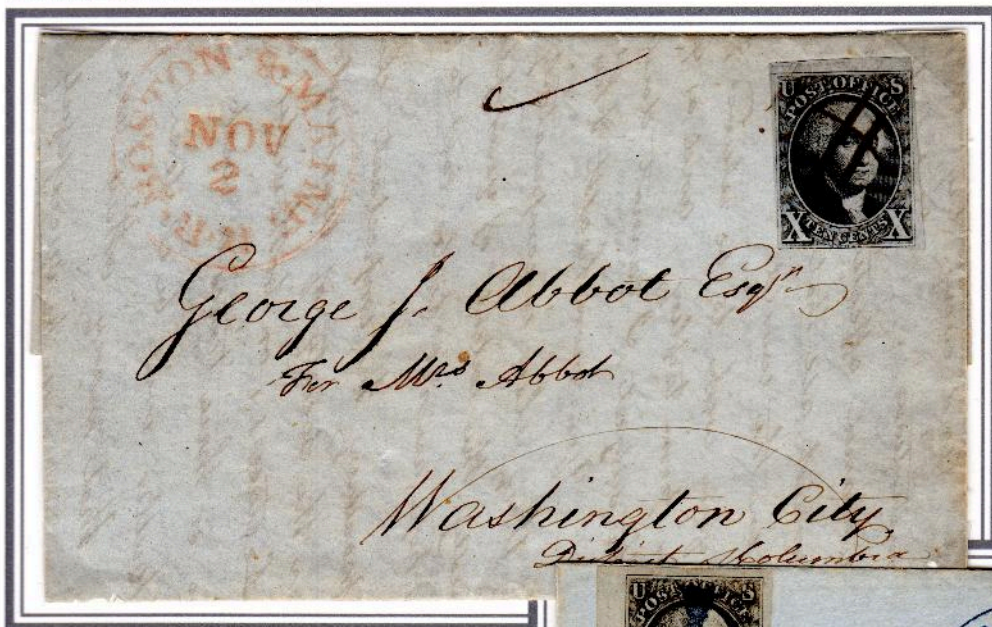 BOSTON & MAINE R.R.
NOV
2
U S
POST OFFICE
X TEN CENTS X
George J. Abbot Esqr
For Mrs Abbot
Washington City
District Columbia
U S
POST OFFICE